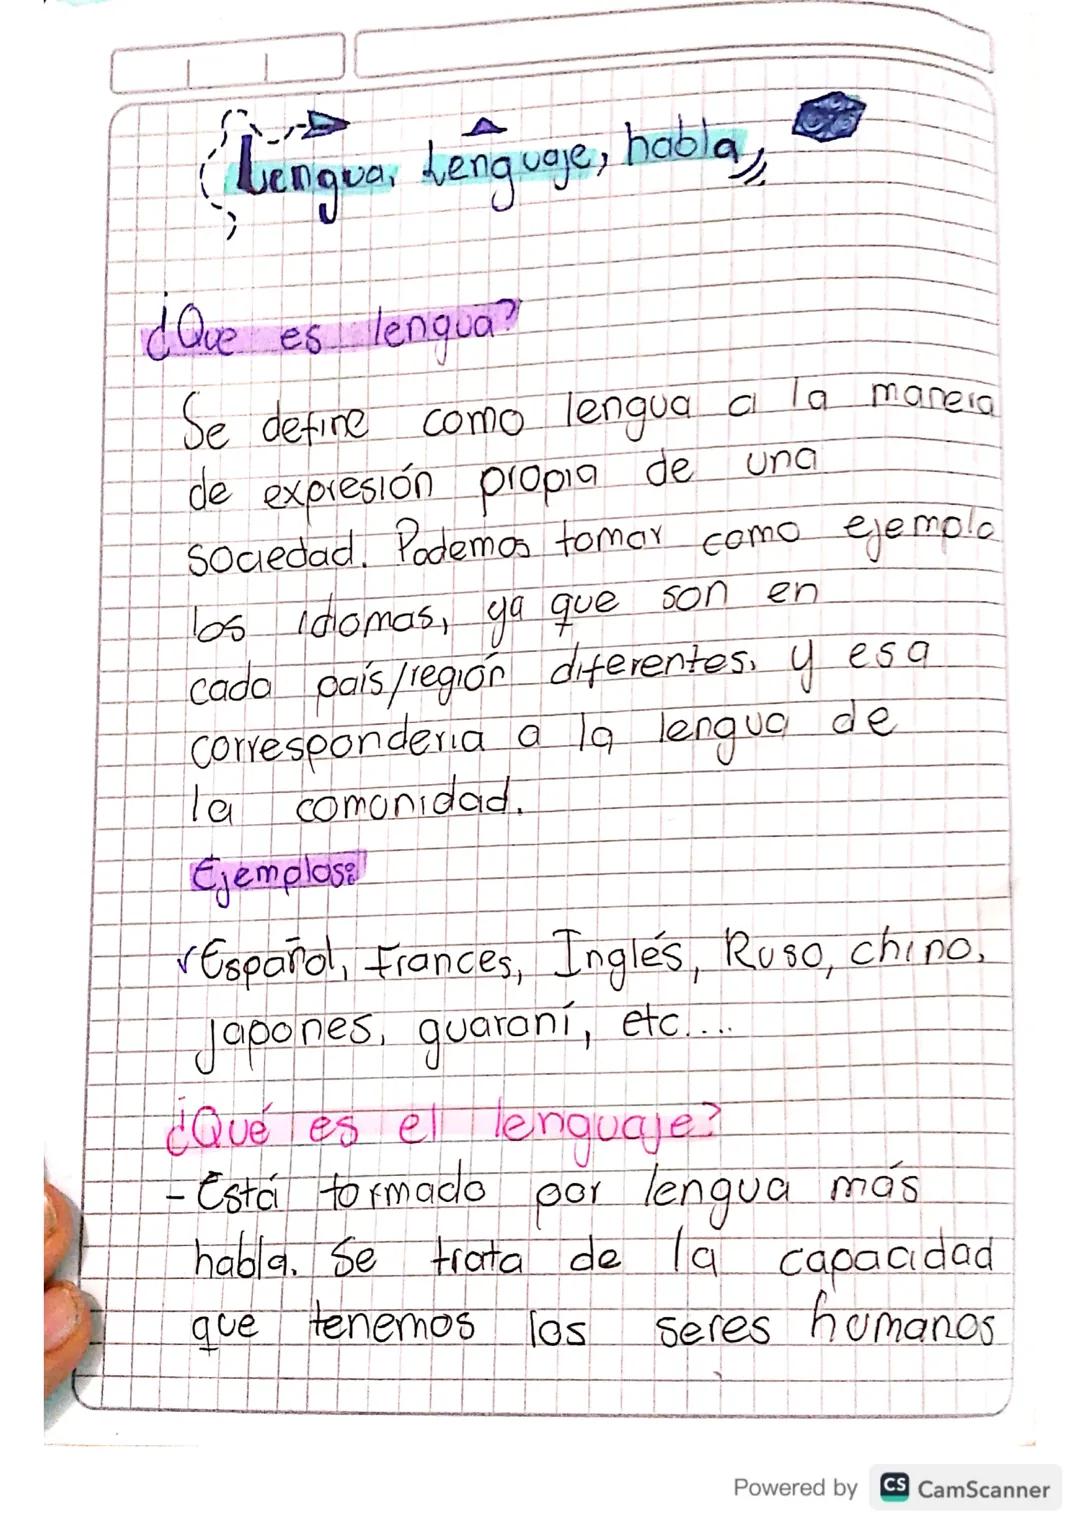 Lengua, Lenguaje, habla,
¿Que es lengua?
Se define como lengua a la manera
de expresión propia de una
sociedad. Podemos tomar como ejemplo
los idomas, ya que son en
cada país/región diferentes. y esa
corresponderia a la lengua de
la comunidad.
Ejemplos:
√Español, Frances, Inglés, Ruso, chino,
Japones, guaraní, etc....
¿Qué es el lenguaje?
- Está formado por lengua más
habla. Se trata de la capacidad
que tenemos los seres humanos
Powered by CS CamScanner